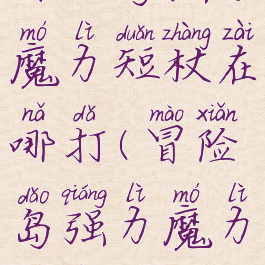 mó lì duǎn zhàng zài
魔力短杖在
nǎ dǎ mào xiǎn
哪打(冒险
dǎo qiáng lì mó lì
岛强力魔力